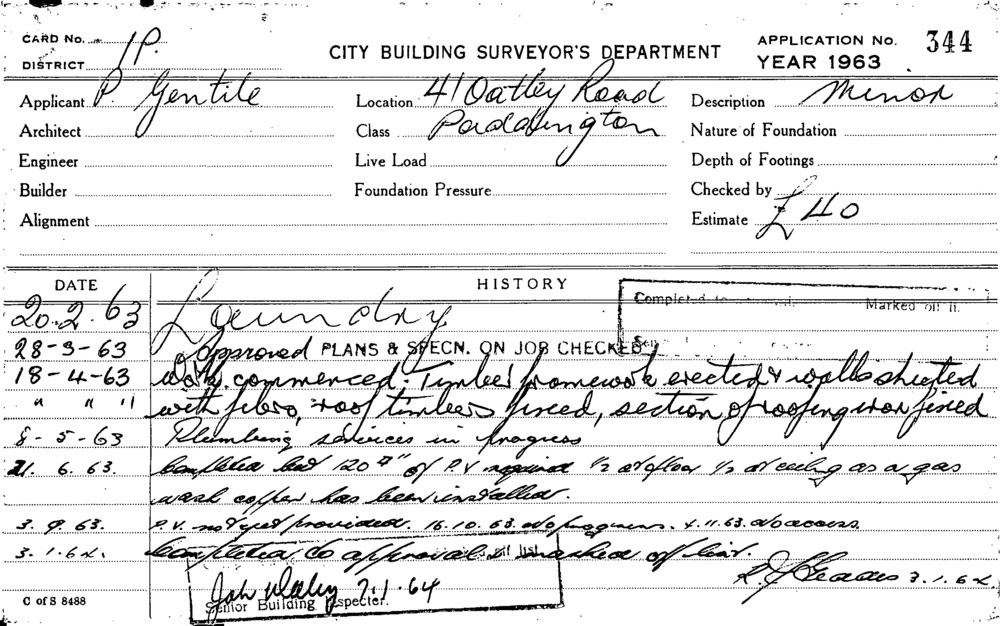 CARD No. 1P.
DISTRICT
CITY BUILDING SURVEYOR'S DEPARTMENT
APPLICATION No. 344
YEAR 1963
Applicant P. Gentile
Location 41 Oatley Road
Description Minor
Architect
Class Paddington
Nature of Foundation
Engineer
Live Load
Depth of Footings
Builder
Foundation Pressure
Checked by
Alignment
Estimate £40
DATE HISTORY
Completed to approval. Marked off li.
20.2.63 Laundry.
28-3-63 Approved PLANS & SPECN. ON JOB CHECKED
18-4-63 Work commenced. Timber framework erected & walls sheeted
" " " with fibro, roof timbers fixed, section of roofing iron fixed
8-5-63 Plumbing services in progress
21.6.63. Completed but 120 □" of P.V required ½ at floor ½ at ceiling as a gas
wash copper has been installed.
3.9.63. P.V. not yet provided. 16.10.63. no progress. 4.11.63. no access.
3.1.64. Completed to approval & marked off list.
3.1.64
7.1.64
Senior Building Inspector.
C of S 8488